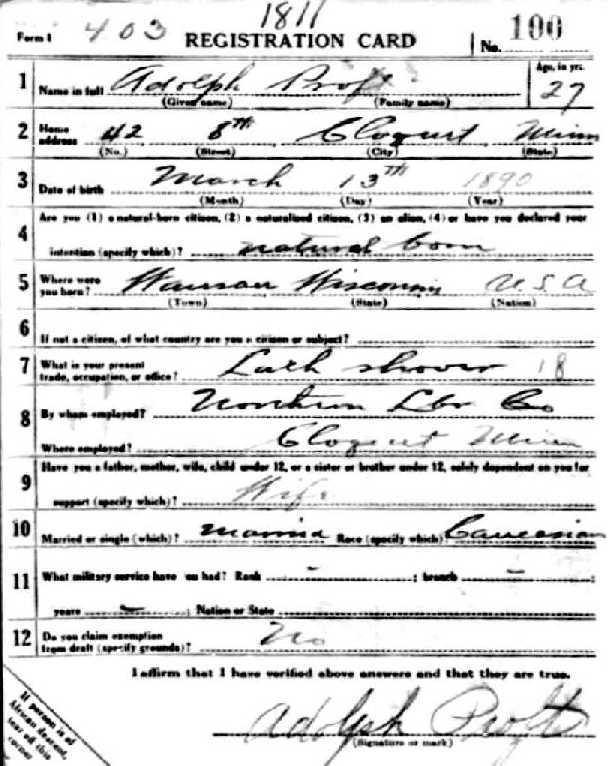 1811
Form 1 403 REGISTRATION CARD No. 100
1 Name in full Adolph Proft Age, in yrs. 27
(Given name) (Family name)
2 Home address 42 8th Cloquet Minn
(No.) (Street) (City) (State)
3 Date of birth March 13TH 1890
(Month) (Day) (Year)
4 Are you (1) a natural-born citizen, (2) a naturalized citizen, (3) an alien, (4) or have you declared your
intention (specify which)? natural born
5 Where were you born? Wausau Wisconsin U.S.A
(Town) (State) (Nation)
6 If not a citizen, of what country are you a citizen or subject?
7 What is your present trade, occupation, or office? Lath shover 18
8 By whom employed? Northern Lbr Co
Where employed? Cloquet Minn
9 Have you a father, mother, wife, child under 12, or a sister or brother under 12, solely dependent on you for
support (specify which)? Wife
10 Married or single (which)? Married Race (specify which)? Caucasian
11 What military service have you had? Rank - ; branch - ;
years - ; Nation or State
12 Do you claim exemption from draft (specify grounds)? No
I affirm that I have verified above answers and that they are true.
Adolph Proft
(Signature or mark)
If person is of
African descent,
tear off this
corner